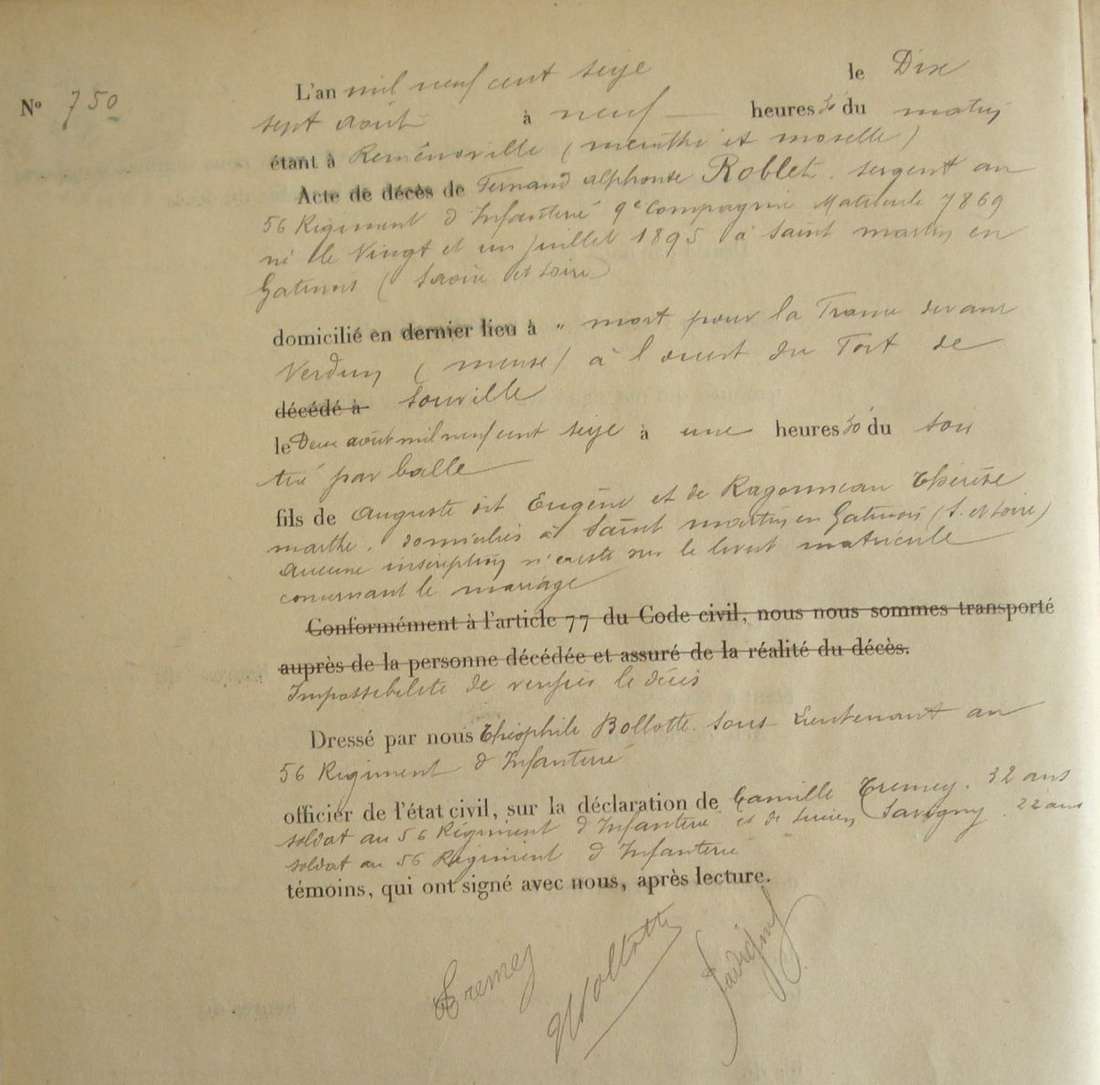 L'an mil neuf cent seize le Dix
N° 750
sept août à neuf heures 30 du matin
étant à Reménoville (meurthe et moselle)
Acte de décès de Fernand alphonse Roblet. sergent au
56 Régiment d'Infanterie 9e Compagnie Matricule 7869
né le Vingt et un juillet 1895 à Saint martin en
Gatinois (Saône et Loire)
domicilié en dernier lieu à " mort pour la France devant
Verdun (meuse) à l'ouest du Fort de
décédé à Souville
le Deux août mil neuf cent seize à une heures 30 du soir
tué par balle
fils de Auguste dit Eugène et de Ragonneau Thérèse
marthe. domiciliés à Saint martin en Gatinois (S. et Loire)
Aucune inscription n'existe sur le livret matricule
concernant le mariage
Conformément à l'article 77 du Code civil, nous nous sommes transporté
auprès de la personne décédée et assuré de la réalité du décès.
Impossibilité de vérifier le décès
Dressé par nous Théophile Bollotte. sous Lieutenant au
56 Régiment d'Infanterie
officier de l'état civil, sur la déclaration de Camille Tremey. 32 ans
soldat au 56 Régiment d'Infanterie et de Lucien Savigny. 22 ans
soldat au 56 Régiment d'Infanterie
témoins, qui ont signé avec nous, après lecture.
Tremey Bollotte Savigny